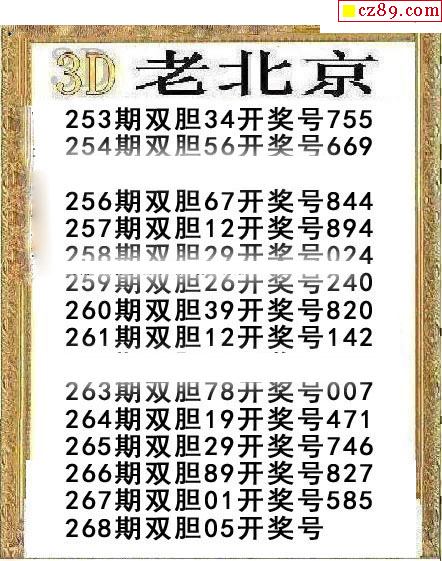 cz89.com
3D 老北京
253期双胆34开奖号755
254期双胆56开奖号669
256期双胆67开奖号844
257期双胆12开奖号894
258期双胆29开奖号024
259期双胆26开奖号240
260期双胆39开奖号820
261期双胆12开奖号142
263期双胆78开奖号007
264期双胆19开奖号471
265期双胆29开奖号746
266期双胆89开奖号827
267期双胆01开奖号585
268期双胆05开奖号